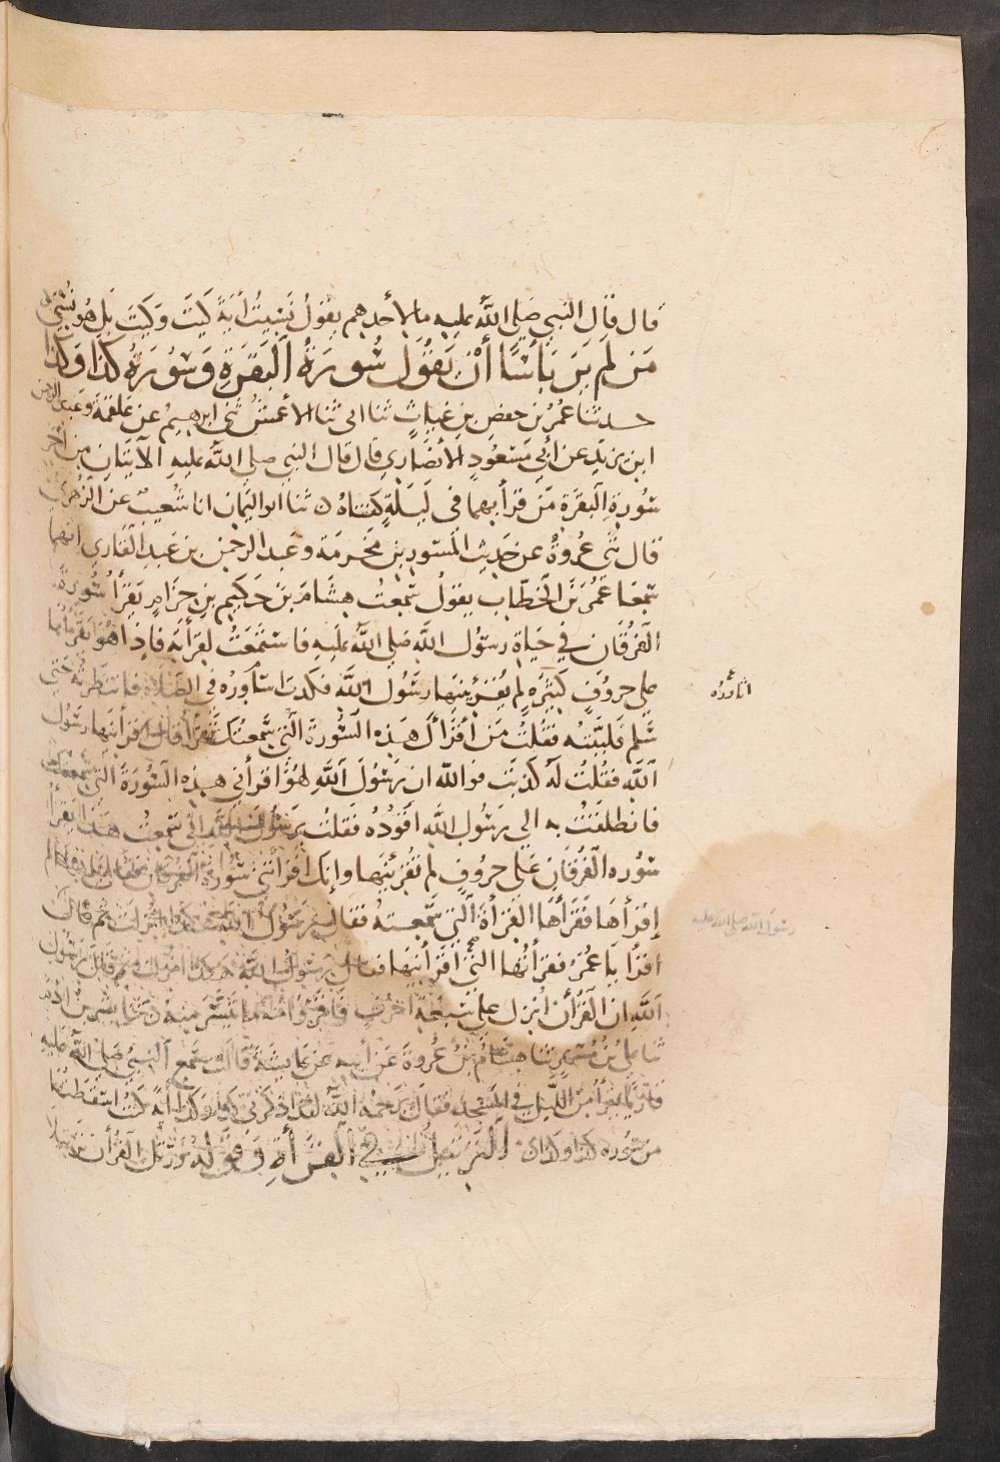 قال قال النبي صلى الله عليه ما لأحدهم يقول نسيت أية كيت وكيت بل هو نسي
من لم ير بأسا أن يقول سورة البقرة وسورة كذا وكذا
حدثنا عمر بن حفص بن غياث ثنا ابى ثنا الأعمش ثنى ابرهيم عن علقمة وعبد الرحمن
ابن يزيد عن أبي مسعود الأنصاري قال قال النبي صلى الله عليه الآيتان من اخر
سورة البقرة من قرأ بهما فى ليلة كفتاه ن ثنا ابو اليمان انا شعيب عن الزهري
قال ثنى عروة عن حديث المسور بن مخرمة وعبد الرحمن بن عبد القاري انهما
سمعا عمر بن الخطاب يقول سمعت هشام بن حكيم بن حزام يقرأ سورة
الفرقان في حياة رسول الله صلى الله عليه فاستمعت لقرأته فإذا هو يقرأها
على حروف كثيرة لم يقرئنيها رسول الله فكدت اساوره فى الصلاة فانتظرته حتى
سلم فلببته فقلت من أقرأك هذه السورة التى سمعتك تقرأ قال اقرأنيها رسول
الله فقلت له كذبت فوالله ان رسول الله لهو اقرأني هذه السورة التى سمعتك
فانطلقت به الي رسول الله اقوده فقلت يرسول الله اني سمعت هذا يقرأ
سورة الفرقان على حروف لم تقرئنيها وإنك اقرأتني سورة الفرقان فقال
إقرأها فقرأها القرأة التى سمعته فقال رسول الله هكذا انزلت ثم قال
اقرأ يا عمر فقرأتها التي أقرأنيها فقال رسول الله هكذا انزلت ثم قال رسول
الله ان القرأن أنزل على سبعة احرف فاقرؤا منه ما تيسر منه ن ثنا بشر بن ادم
ثنا علي بن مسهر ثنا هشام بن عروة عن أبيه عن عايشة قالت سمع النبي صلى الله عليه
قارئا يقرأ من الليل في المسجد فقال يرحمه الله لقد اذكرنى كذا وكذا أية كنت اسقطتها
من سورة كذا وكذا ن الترتيل في القرأة وقوله ورتل القرأن ترتيلا
اقوده
رسول الله صلى الله عليه